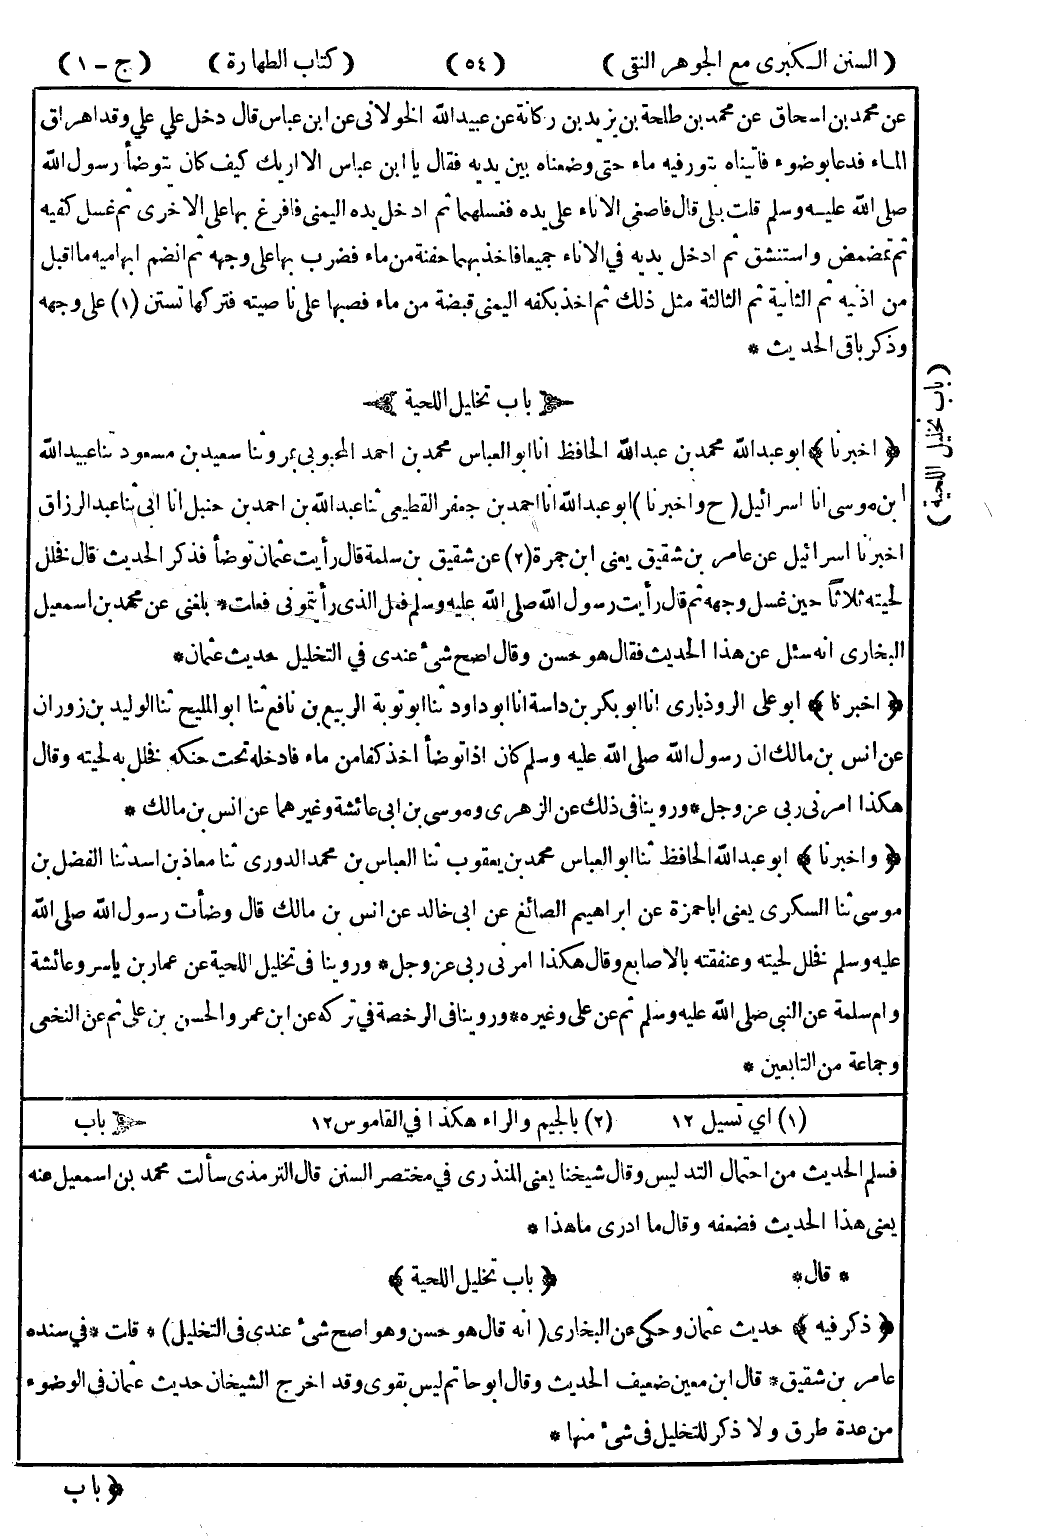 ( السنن الكبرى مع الجوهر النقى ) ( ٥٤ ) ( كتاب الطهارة ) ( ج - ١ )
عن محمد بن اسحاق عن محمد بن طلحة بن يزيد بن ركانة عن عبيد الله الخولانى عن ابن عباس قال دخل علي علي وقد اهراق
الماء فدعا بوضوء فاتيناه بتور فيه ماء حتى وضعناه بين يديه فقال يا ابن عباس الا اريك كيف كان يتوضأ رسول الله
صلى الله عليه وسلم قلت بلى قال فاصغى الاناء على يده فغسلهما ثم ادخل يده اليمنى فافرغ بها على الاخرى ثم غسل كفيه
ثم تمضمض واستنشق ثم ادخل يديه في الاناء جميعا فاخذ بهما حفنة من ماء فضرب بها على وجهه ثم انضم ابهاميه ما اقبل
من اذنيه ثم الثانية ثم الثالثة مثل ذلك ثم اخذ بكفه اليمنى قبضة من ماء فصبها على ناصيته فتركها تستن (١) على وجهه
وذكر باقى الحديث *
﴿ باب تخليل اللحية ﴾
( باب تخليل اللحية )
﴿ اخبرنا ﴾ ابو عبد الله محمد بن عبد الله الحافظ انا ابو العباس محمد بن احمد المحبوبى بمرو ثنا سعيد بن مسعود ثنا عبيد الله
ابن موسى انا اسرائيل ( ح واخبرنا ) ابو عبد الله انا احمد بن جعفر القطيعى ثنا عبد الله بن احمد بن حنبل انا ابى ثنا عبد الرزاق
اخبرنا اسرائيل عن عامر بن شقيق يعنى ابن جمرة (٢) عن شقيق بن سلمة قال رأيت عثمان توضأ فذكر الحديث قال فخلل
لحيته ثلاثاً حين غسل وجهه ثم قال رأيت رسول الله صلى الله عليه وسلم فعل الذى رأيتمونى فعلت * بلغنى عن محمد بن اسمعيل
البخارى انه سئل عن هذا الحديث فقال هو حسن وقال اصح شىء عندى في التخليل حديث عثمان *
﴿ اخبرنا ﴾ ابو على الروذبارى انا ابو بكر بن داسة انا ابو داود ثنا ابو توبة الربيع بن نافع ثنا ابو المليح ثنا الوليد بن زوران
عن انس بن مالك ان رسول الله صلى الله عليه وسلم كان اذا توضأ اخذ كفا من ماء فادخله تحت حنكه فخلل به لحيته وقال
هكذا امرنى ربى عز وجل * وروينا فى ذلك عن الزهرى وموسى بن ابى عائشة وغيرهما عن انس بن مالك *
﴿ واخبرنا ﴾ ابو عبد الله الحافظ ثنا ابو العباس محمد بن يعقوب ثنا العباس بن محمد الدورى ثنا معاذ بن اسد ثنا الفضل بن
موسى ثنا السكرى يعنى ابا حمزة عن ابراهيم الصائغ عن ابى خالد عن انس بن مالك قال وضأت رسول الله صلى الله
عليه وسلم فخلل لحيته وعنفقته بالاصابع وقال هكذا امرنى ربى عز وجل * وروينا فى تخليل اللحية عن عمار بن ياسر وعائشة
وام سلمة عن النبى صلى الله عليه وسلم ثم عن على وغيره * وروينا فى الرخصة في تركه عن ابن عمر والحسن بن على ثم عن النخعى
وجماعة من التابعين *
(١) اي تسيل ١٢ (٢) بالجيم والراء هكذا في القاموس ١٢ ﴿ باب
فسلم الحديث من احتمال التدليس وقال شيخنا يعنى المنذرى في مختصر السنن قال الترمذى سألت محمد بن اسمعيل عنه
يعنى هذا الحديث فضعفه وقال ما ادرى ما هذا *
* قال * ﴿ باب تخليل اللحية ﴾
﴿ ذكر فيه ﴾ حديث عثمان وحكى عن البخارى ( انه قال هو حسن وهو اصح شىء عندى فى التخليل ) * قلت * في سنده
عامر بن شقيق * قال ابن معين ضعيف الحديث وقال ابو حاتم ليس بقوى وقد اخرج الشيخان حديث عثمان فى الوضوء
من عدة طرق ولا ذكر للتخليل فى شىء منها *
﴿ باب